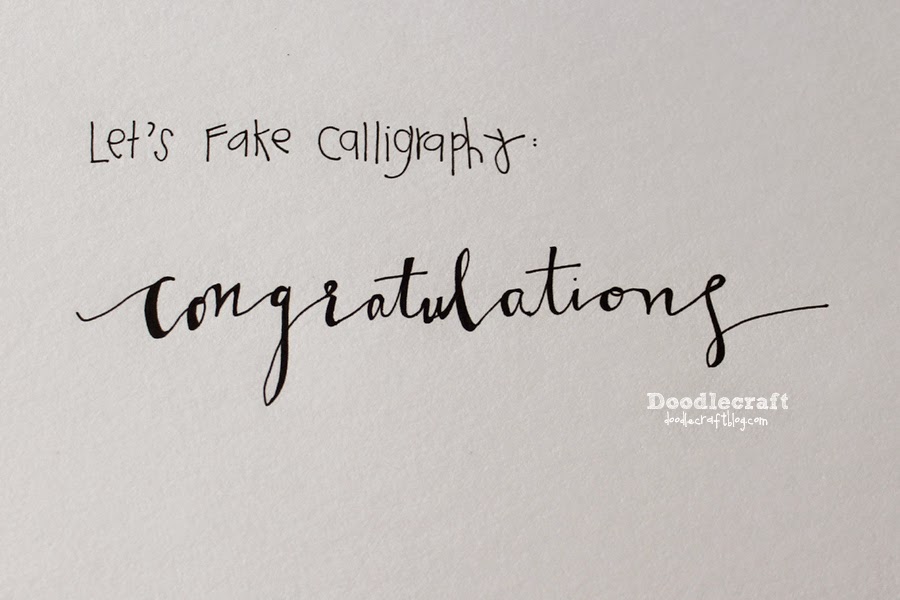 Let's Fake Calligraphy:
congratulations
Doodlecraft
doodlecraftblog.com